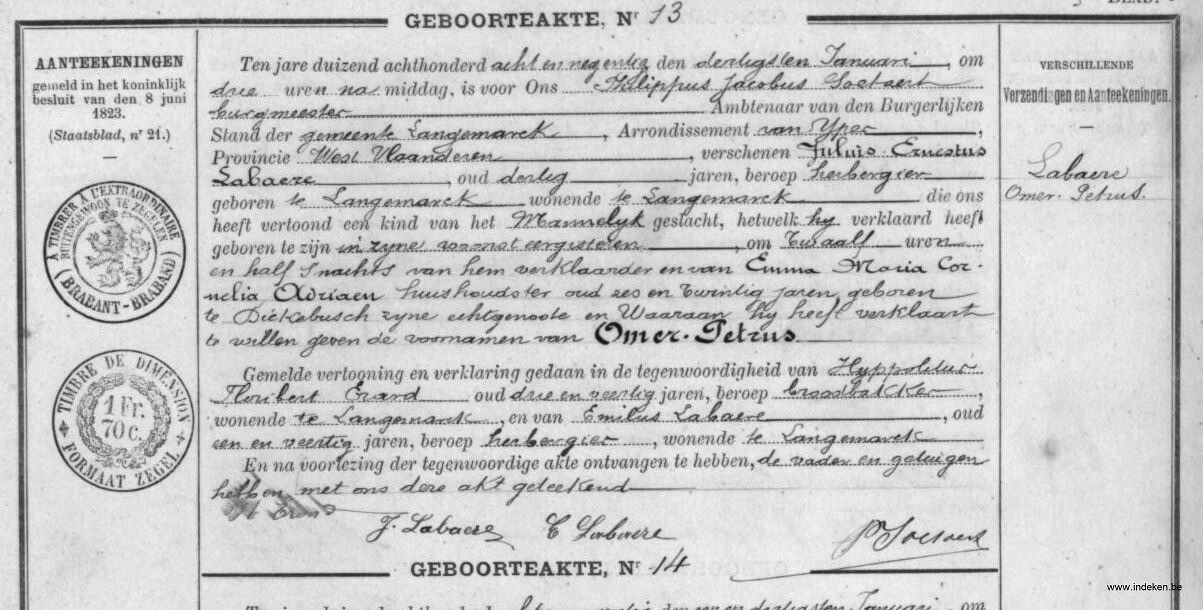 BLAD.
GEBOORTEAKTE, Nr 13
AANTEEKENINGEN
gemeld in het koninklijk
besluit van den 8 juni
1823.
(Staatsblad, nr 21.)
—
A TIMBRER A L'EXTRAORDINAIRE
BUITENGEWOON TE ZEGELEN
(BRABANT-BRABAND)
TIMBRE DE DIMENSION
1 Fr.
70 c.
FORMAAT ZEGEL
Ten jare duizend achthonderd acht en negentig den dertigsten Januari, om
drie uren na middag, is voor Ons Philippus Jacobus Soetaert
burgmeester Ambtenaar van den Burgerlijken
Stand der gemeente Langemarck, Arrondissement van Yper,
Provincie West Vlaanderen, verschenen Juluis-Ernestus
Labaere, oud dertig jaren, beroep herbergier
geboren te Langemarck wonende te Langemarck die ons
heeft vertoond een kind van het Mannelyk geslacht, hetwelk hy verklaard heeft
geboren te zijn in zyne woonst eergisteren, om Twaalf uren
en half snachts van hem verklaarder en van Emma Maria Cor-
nelia Adriaen huishoudster oud zes en twintig jaren geboren
te Dickebusch zyne echtgenoote en Waaraan hy heeft verklaart
te willen geven de voornamen van Omer-Petrus
Gemelde vertooning en verklaring gedaan in de tegenwoordigheid van Hyppolitus
Floribert Erard oud drie en veertig jaren, beroep broodbakker,
wonende te Langemarck, en van Emilus Labaere, oud
een en veertig jaren, beroep herbergier, wonende te Langemarck
En na voorlezing der tegenwoordige akte ontvangen te hebben, de vader en getuigen
hebben met ons deze akt geteekend
J. Labaere E Labaere P Soetaert
VERSCHILLENDE
Verzendingen en Aanteekeningen.
—
Labaere
Omer-Petrus.
GEBOORTEAKTE, Nr 14
www.indeken.be